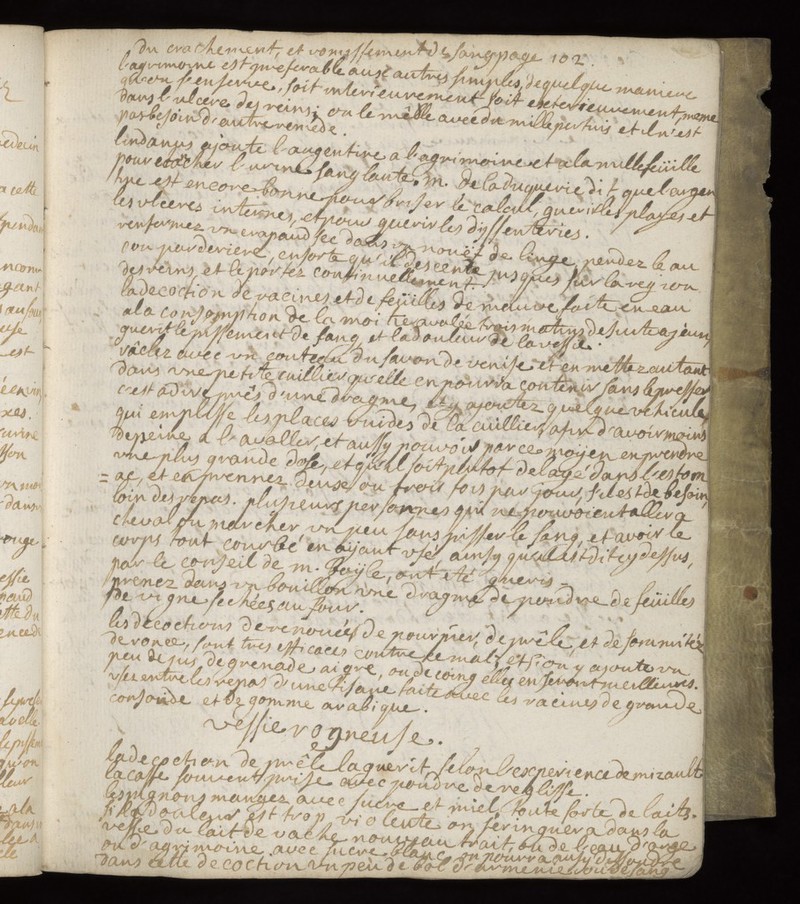 du crachement, et vomissement de sang page 102.
l'agrimoine est preferable aux autres simples, de quelque maniere
qu'on s'en serve, soit interieurement soit exterieurement, meme
dans l'ulcere des reins; on le mêlle avec du millepertuis et il n'est
pas besoin d'autre remede.
lindanus ajoute l'augentine a l'agrimoine et a la millefeüille
pour empêcher l'urine sanglante. m. de la Duquerie dit que l'argen
tine est encore bonne pour briser le calcul, guerir les playes et
les ulceres internes, et pour guerir les dyssenteries.
renfermez un crapaud sec dans un nouët de linge, pendez le au
cou par deriere, ensorte qu'il descente jusques sur la region
des reins, et le portez continuellement.
la decoction de racines et de feüilles de mauve faite en eau
a la consomption de la moitié avalée trois matins de suite a jeun,
guerit le pissement de sang et la douleur de la vessie.
râclez avec un couteau du savon de venise et en mettez autant
dans une petite cuillier qu'elle en pourra contenir sans le presser
c'est a dire prés d'une dragme, et y ajoutez quelque vehicule,
qui emplisse les places vuides de la cuillier, afin d'avoir moins
de peine a l'avaller, et aussy pouvoir par ce moyen en prendre
une plus grande dose, et qu'il soit plutot delayé dans l'estom
= ac, et en prennez deux ou trois fois par jour, s'il est de besoin,
loin des repas. plusieurs personnes qui ne pouvoient aller a
cheval ou marcher un peu sans pisser le sang, et avoir le
corps tout courbé en ayant usé ainsy qu'il est dit cy dessus,
par le conseil de m. Bayle, ont été gueris.
prenez dans un bouillon une dragme de poudre de feüilles
de vigne sechées au four.
les decoctions de renouée, de pourpier, de prêle, et de sommitez
de ronce, sont tres efficaces contre ce mal, et si on y ajoute un
peu de jus de grenade aigre, ou de coing elles en seront meilleures.
usez entre les repas d'une tisane faite avec les racines de grande
consoude et de gomme arabique.
vessie rogneuse.
la decoction de prêle la guerit, selon l'experience de mizault
la casse souvent prise avec poudre de reglisse.
les pignons mangez avec sucre et miel, toute sorte de laits.
si la douleur est trop violente on seringuera dans la
vessie du lait de vache nouveau trait, ou de l'eau d'orge
ou d'agrimoine avec sucre blanc. on pourra aussy dissoudre
dans cette decoction un peu de bol d'armenie, ou de sang